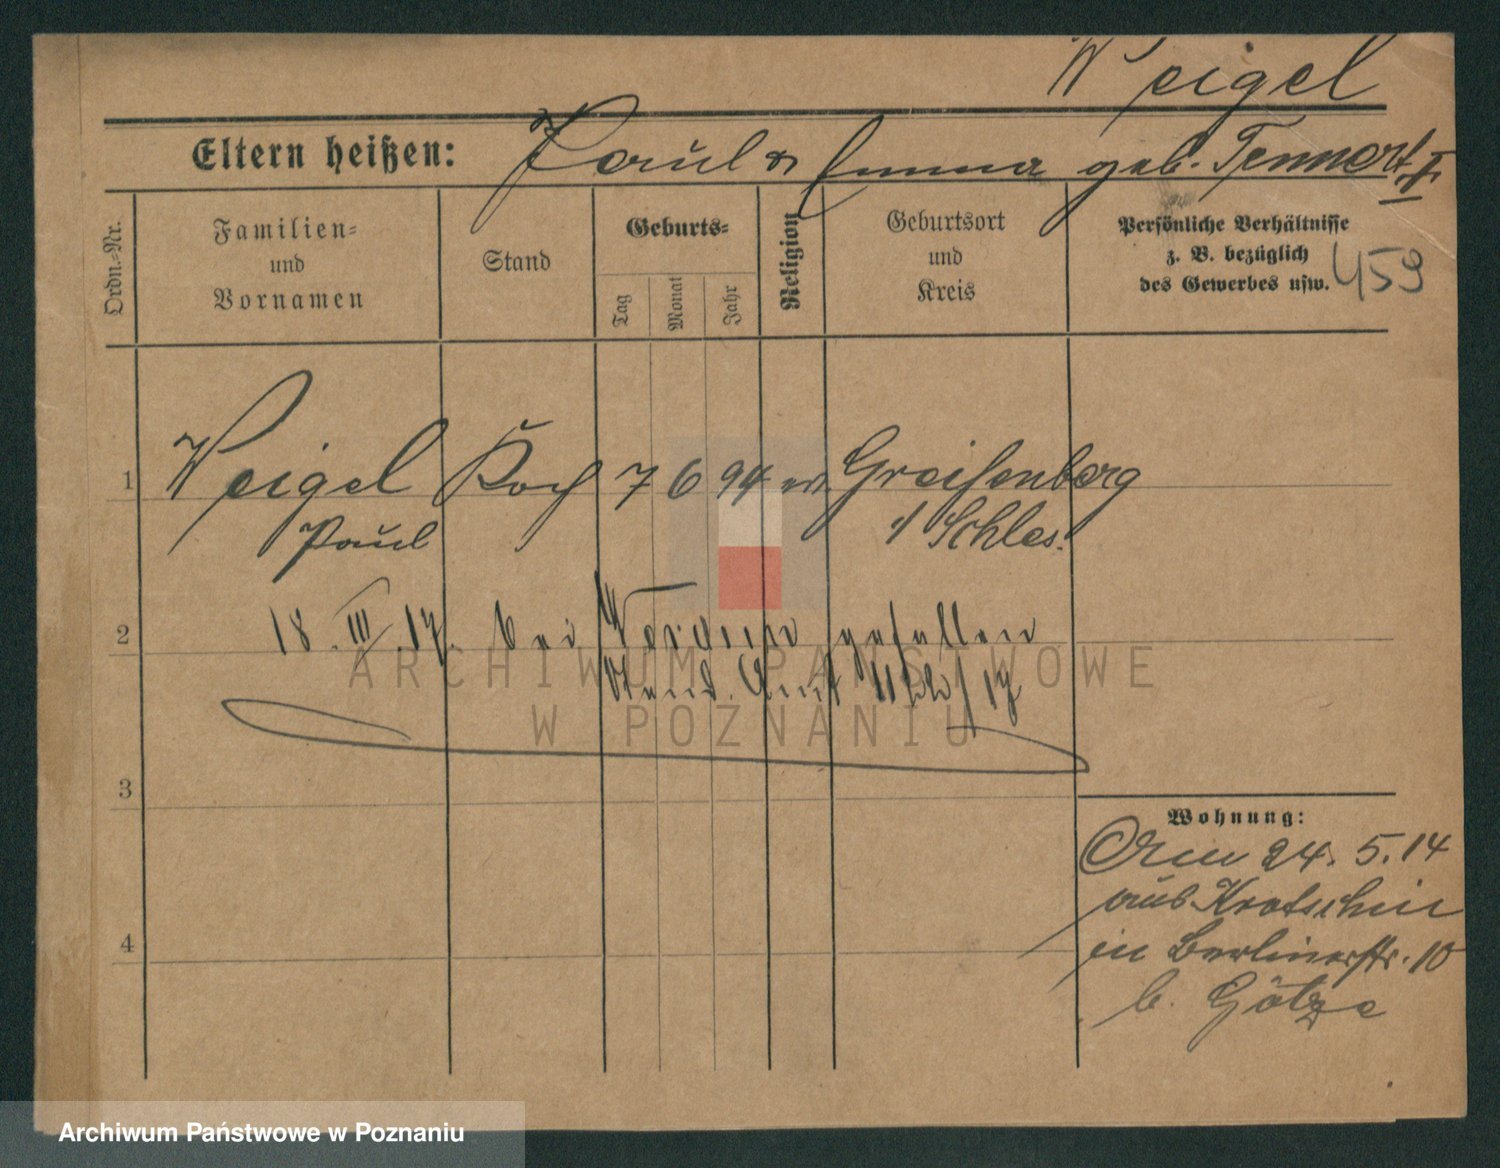 Weigel
Eltern heißen: Paul u. Emma geb. Tennert
Ordn.-Nr.
Familien-
und
Vornamen
Stand
Geburts-
Tag
Monat
Jahr
Religion
Geburtsort
und
Kreis
Persönliche Verhältnisse
z. B. bezüglich
des Gewerbes usw.
459
1 Weigel Koch 7 6 94 ev. Greifenberg
Paul i/ Schles.
2 18. III. 17. bei Verdun gefallen
Stand. Amt 1122/17
ARCHIWUM PAŃSTWOWE
W POZNANIU
3
Wohnung:
Am 24. 5. 14
aus Krotschin
in Berlinerstr. 10
4
b. Götze
Archiwum Państwowe w Poznaniu